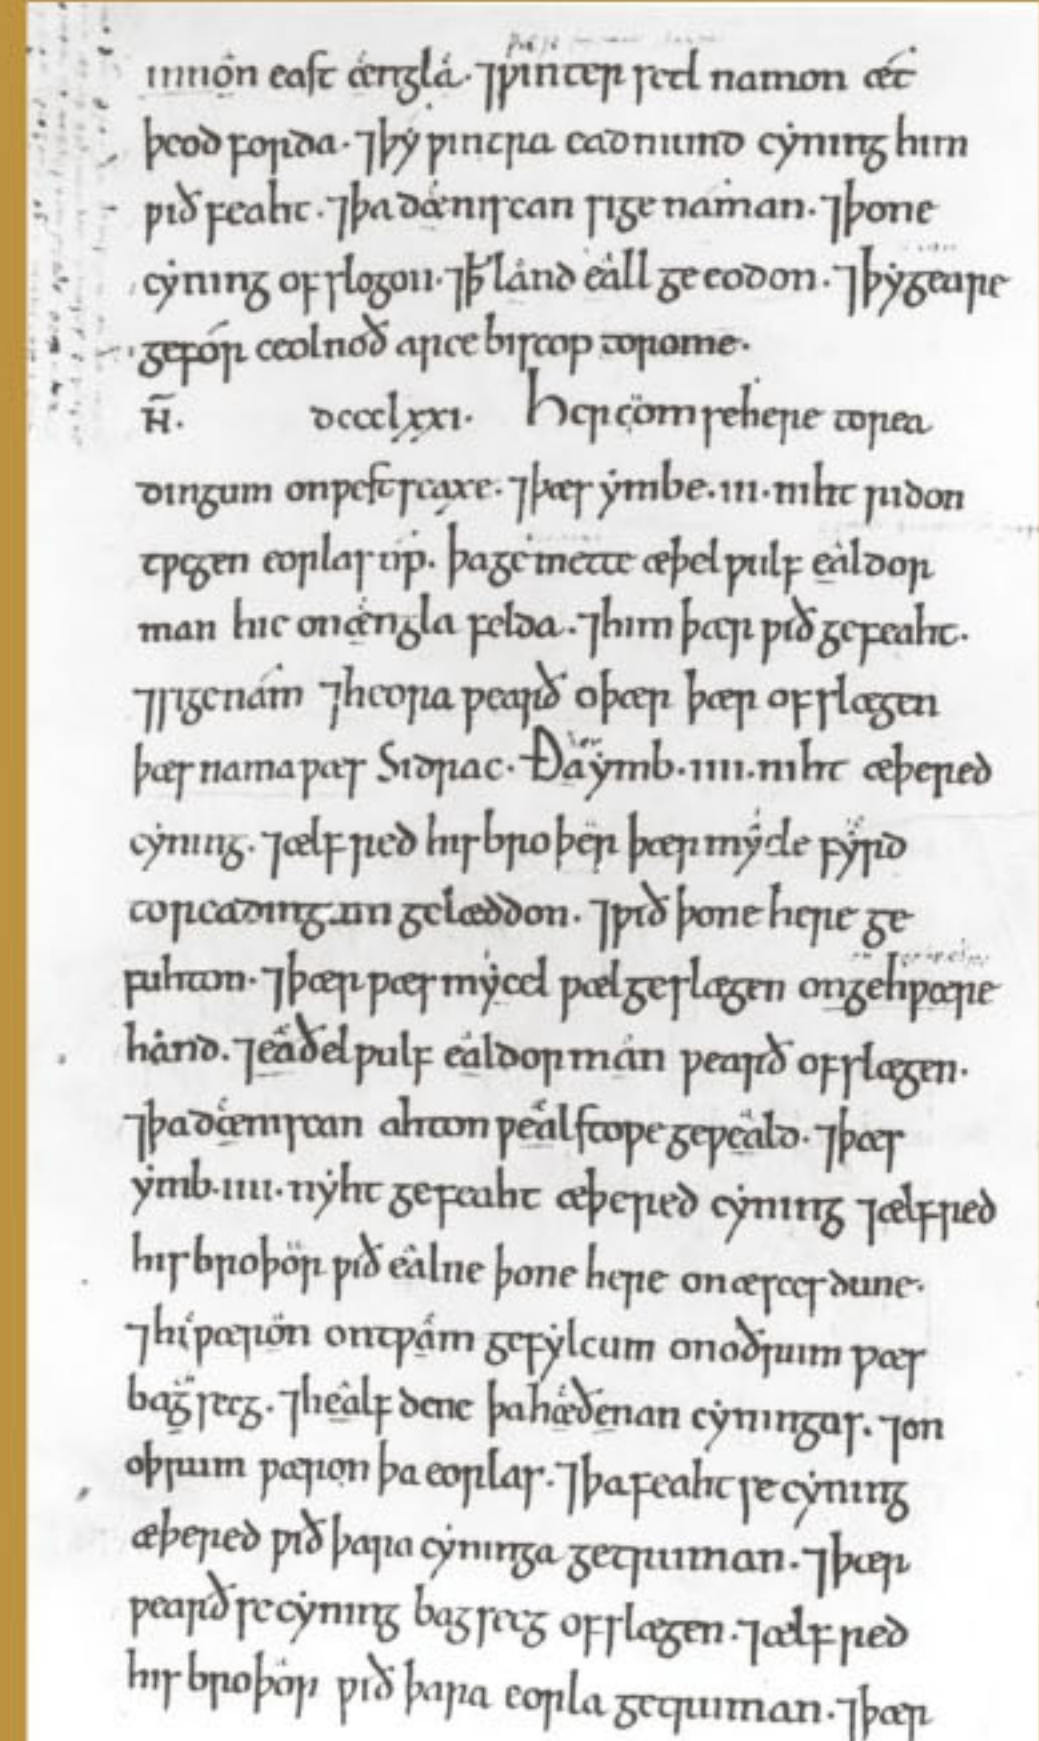 innon east ængla · ⁊ ƿinter setl namon æt
þeod forda · ⁊ þẏ ƿintra eadmund cẏning him
ƿið feaht · ⁊ þa dæniscan sige náman · ⁊ þone
cẏning ofslogon · ⁊ ꝥ land eall ge eodon · ⁊ þẏ geare
gefór ceolnoð arce biscop to rome ·
N̄ · dccclxxi · Her com se here to rea
dingum on ƿest seaxe · ⁊ þæs ẏmbe · iii · niht ridon
tƿegen eorlas úp · þa ge mette æþel ƿulf ealdor
man hie on ængla felda · ⁊ him þær ƿið gefeaht ·
⁊ sige nám ⁊ heora ƿearð oþær þær of slægen
þæs nama ƿæs Sidrac · Ða ẏmb · iiii · niht æþered
cẏning · ⁊ ælfred his broþer þær mẏcle fẏrd
to readingum gelæddon · ⁊ ƿið þone here ge
fuhton · ⁊ þær ƿæs mẏcel ƿæl geslægen on gehƿære
hand · ⁊ eaðelƿulf ealdorman ƿearð ofslægen ·
⁊ þa dæniscan ahton ƿealstoƿe geƿeald · ⁊ þæs
ẏmb · iiii · nẏht gefeaht æþered cẏning ⁊ ælfred
his broþor ƿið ealne þone here on æsces dune ·
⁊ hi ƿæron on tƿam gefẏlcum on oðrum ƿæs
bagsecg · ⁊ healfdene þa hæðenan cẏningas · ⁊ on
oþrum ƿæron þa eorlas · ⁊ þa feaht se cẏning
æþered ƿið þara cẏninga getruman · ⁊ þær
ƿearð se cẏning bagsecg ofslægen · ⁊ ælfred
his broþor ƿið þara eorla getruman · ⁊ þær